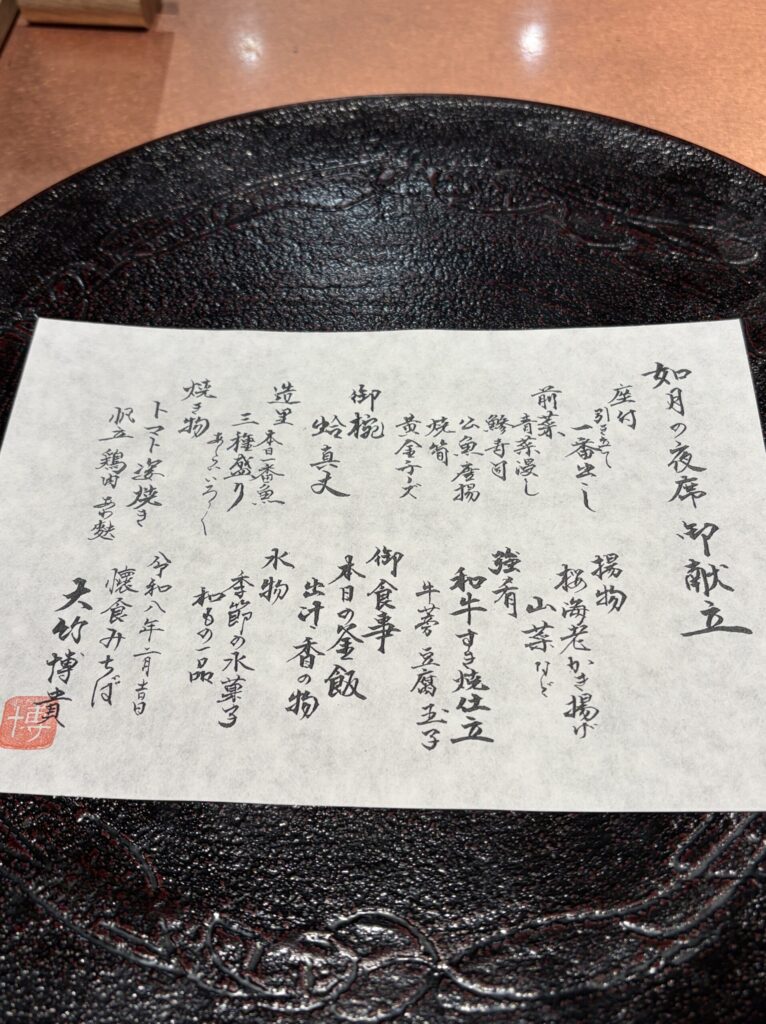 如月の夜席 御献立
座付
引きたて
一番出し
前菜
青菜浸し
鯵寿司
公魚唐揚
焼筍
黄金チーズ
御椀
蛤真丈
造里
本日一番魚
三種盛り
あしらいいろ〱
焼き物
トマト釜焼き
帆立 鶏肉 あわ麩
揚物
桜海老かき揚げ
山菜など
強肴
和牛すき焼仕立
牛蒡 豆腐 玉子
御食事
本日の釜飯
出汁 香の物
水物
季節の水菓子
和もの一品
令和八年二月吉日
懐食みちば
大竹博貴
博